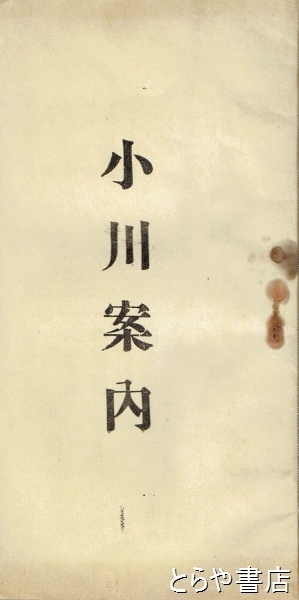 小川案内
とらや書店